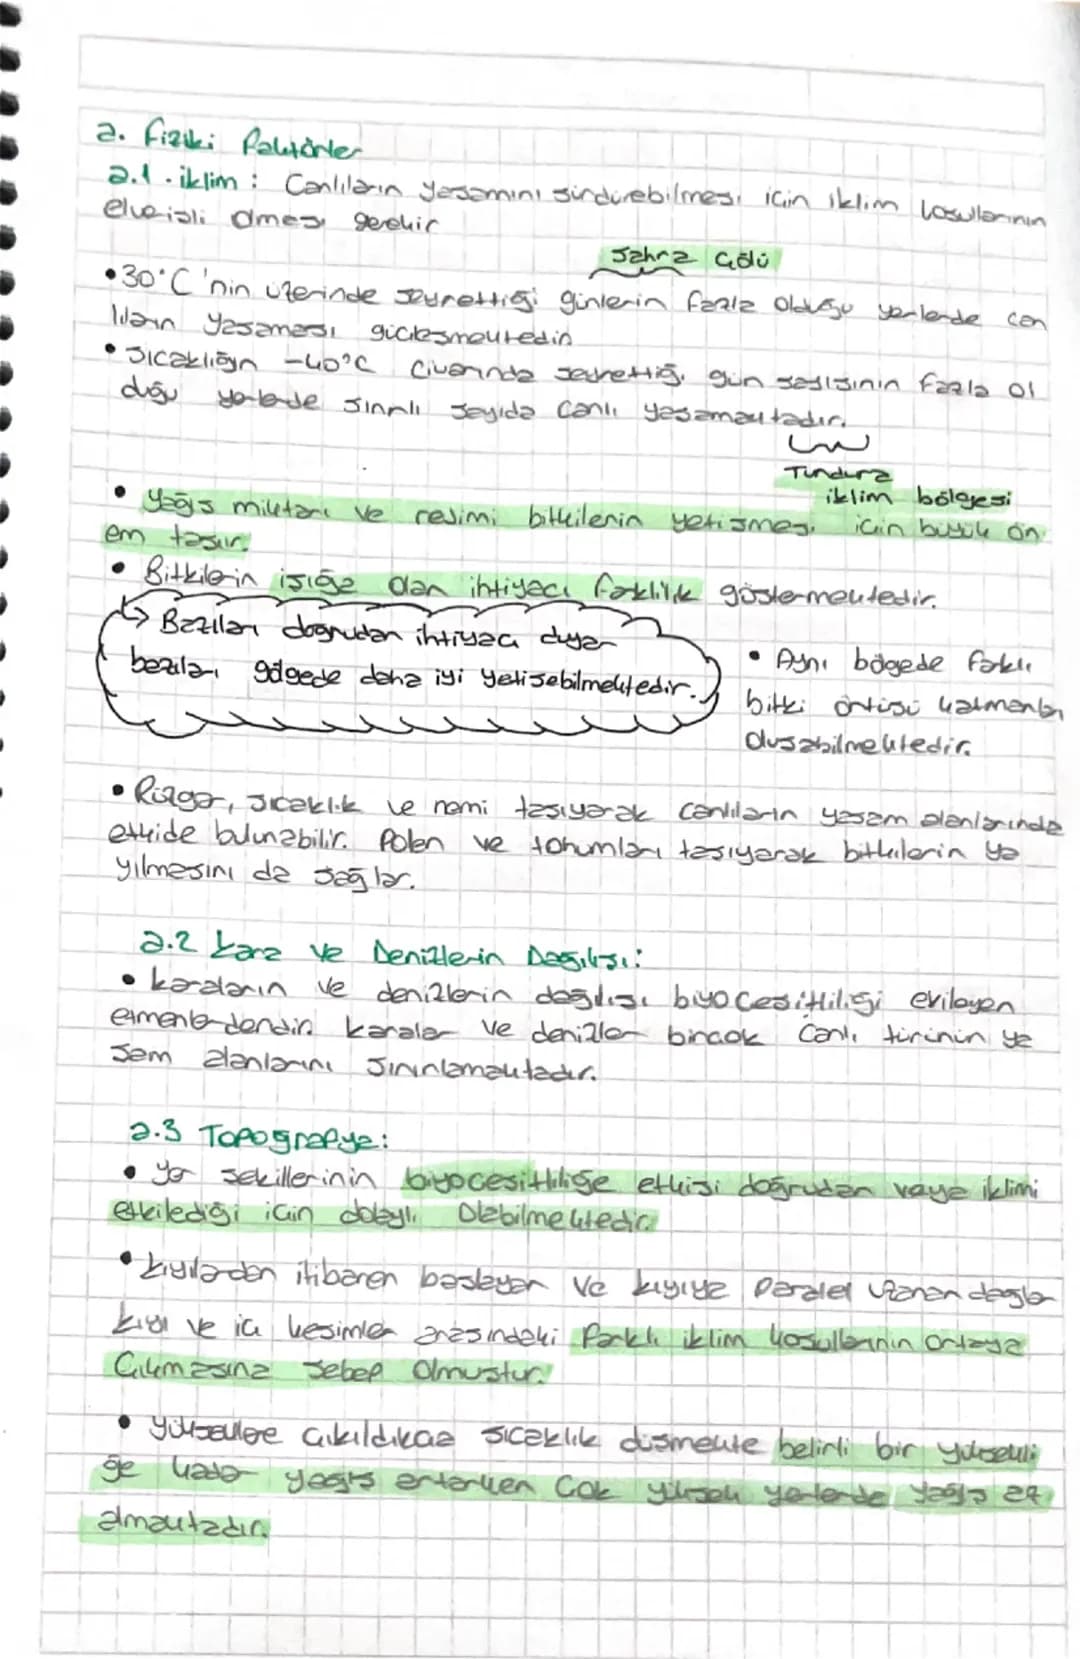 a. Fiziki Faktörler
a.1. iklim : Canlıların yaşamını sürdürebilmesi için iklim koşullarının
elverişli olması gerekir
Sahra Çölü
• 30°C'nin üzerinde seyrettiği günlerin fazla olduğu yerlerde can
lıların yaşaması güçleşmektedir
• Sıcaklığın -40°C civarında seyrettiği gün sayısının fazla ol
duğu yerlerde sınırlı sayıda canlı yaşamaktadır.
Tundura
iklim bölgesi
• Yağış miktarı ve resimi bitkilerin yetişmesi için büyük ön
em taşır.
• Bitkilerin ışığa olan ihtiyacı farklılık göstermektedir.
↳ Bazıları doğrudan ihtiyacı duyar
bazıları gölgede daha iyi yetişebilmektedir.
• Aynı bölgede farklı
bitki örtüsü katmanları
oluşabilmektedir.
• Rüzgar, sıcaklık ve nemi taşıyarak canlıların yaşam alanlarında
etkide bulunabilir. Polen ve tohumları taşıyarak bitkilerin ya
yılmasını da sağlar.
a.2 Kara ve Denizlerin Dağılışı:
• karaların ve denizlerin dağılışı biyoçeşitliliği etkileyen
etmenlerdendir. karalar ve denizler birçok canlı türünün ya
şam alanlarını sınırlamaktadır.
a.3 Topografya:
• yer şekillerinin biyoçeşitliliğe etkisi doğrudan veya iklimi
etkilediği için dolaylı olabilmektedir.
• Kıyılardan itibaren başlayan ve kıyıya paralel uzanan dağlar
kıyı ve iç kesimler arasındaki farklı iklim koşullarının ortaya
çıkmasına sebep olmuştur.
• yükseklere çıkıldıkça sıcaklık düşmekte belirli bir yüksekli
ğe kadar yağış artarken çok yüksek yerlerde yağış az
almaktadır.